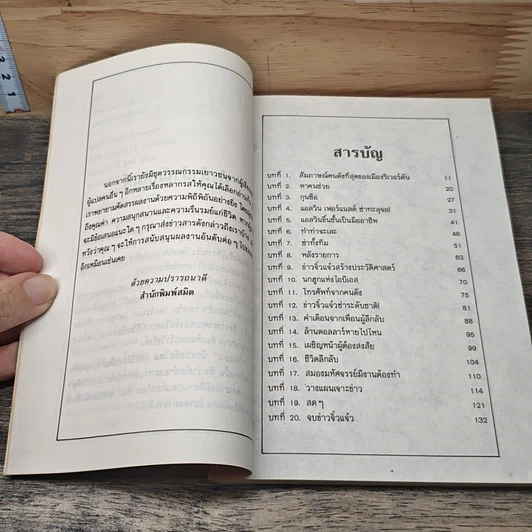 นอกจากนี้เรายังมีชุดวรรณกรรมเยาวชนจากผู้
ผู้แปลคนอื่น ๆ อีกหลายเรื่องหลากรสให้คุณได้เลือกอ่าน
เราพยายามคัดสรรผลงานด้วยความพิถีพิถันอย่างยิ่ง โดย
ถึงคุณค่า ความสนุกสนานและความรื่นรมย์แก่ชีวิต หาก
จะมีข้อเสนอแนะใด ๆ กรุณาส่งข่าวสารดังกล่าวถึงเรา
หวังว่าคุณ ๆ จะให้การสนับสนุนผลงานอันดับต่อ ๆ ไป
อีกเหมือนเช่นเคย
ด้วยความปรารถนาดี
สำนักพิมพ์สมิต
สารบัญ
บทที่ 1. สัมภาษณ์คนดังที่สุดของเมืองริเวอร์ตัน 11
บทที่ 2. หาคนช่วย 20
บทที่ 3. กุนซือ 27
บทที่ 4. แอลวิน เฟอร์แนลด์ ซ่าทะลุจอ! 31
บทที่ 5. แอลวินขึ้นชั้นเป็นมืออาชีพ 41
บทที่ 6. ทำท่าจะเละ 48
บทที่ 7. ซ่าทั้งทีม 51
บทที่ 8. หลังรายการ 63
บทที่ 9. ข่าวจิ๋วแจ๋วสร้างประวัติศาสตร์ 66
บทที่ 10. นกฮูกแห่งโอบีเอส 70
บทที่ 11. โทรศัพท์จากคนดัง 75
บทที่ 12. ข่าวจิ๋วแจ๋วซ่าระดับชาติ! 81
บทที่ 13. คำเตือนจากเพื่อนผู้ลึกลับ 88
บทที่ 14. ล้านดอลลาร์หายไปไหน 90
บทที่ 15. เผชิญหน้าผู้ต้องสงสัย 96
บทที่ 16. ชีวิตลึกลับ 104
บทที่ 17. สมองมหัศจรรย์มีงานต้องทำ 110
บทที่ 18. วางแผนเจาะข่าว 114
บทที่ 19. สด ๆ 121
บทที่ 20. จบข่าวจิ๋วแจ๋ว 132